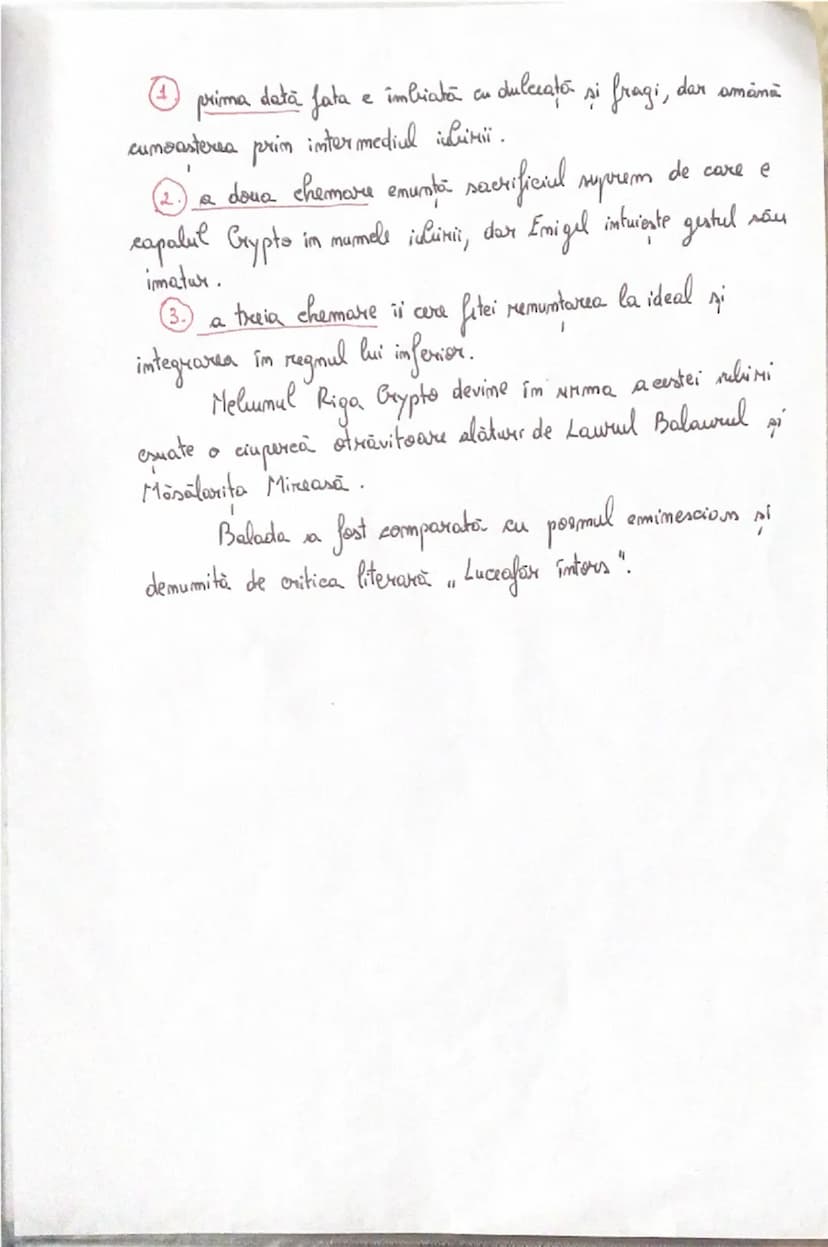 1. prima dată fata e îmbiată cu dulceață și fragi, dar amână
cunoașterea prin intermediul iubirii.
2. a doua chemare enunță sacrificiul suprem de care e
capabil Crypto în numele iubirii, dar Enigel intuiește gestul său
imatur.
3. a treia chemare îi cere fetei renunțarea la ideal și
integrarea în regnul lui inferior.
Nebunul Riga Crypto devine în urma acestei iubiri
eșuate o ciupercă otrăvitoare alături de Laurul Balaurul și
Măsălarița Mireasă.
Balada a fost comparată cu poemul eminescian și
denumită de critica literară „Luceafăr întors".